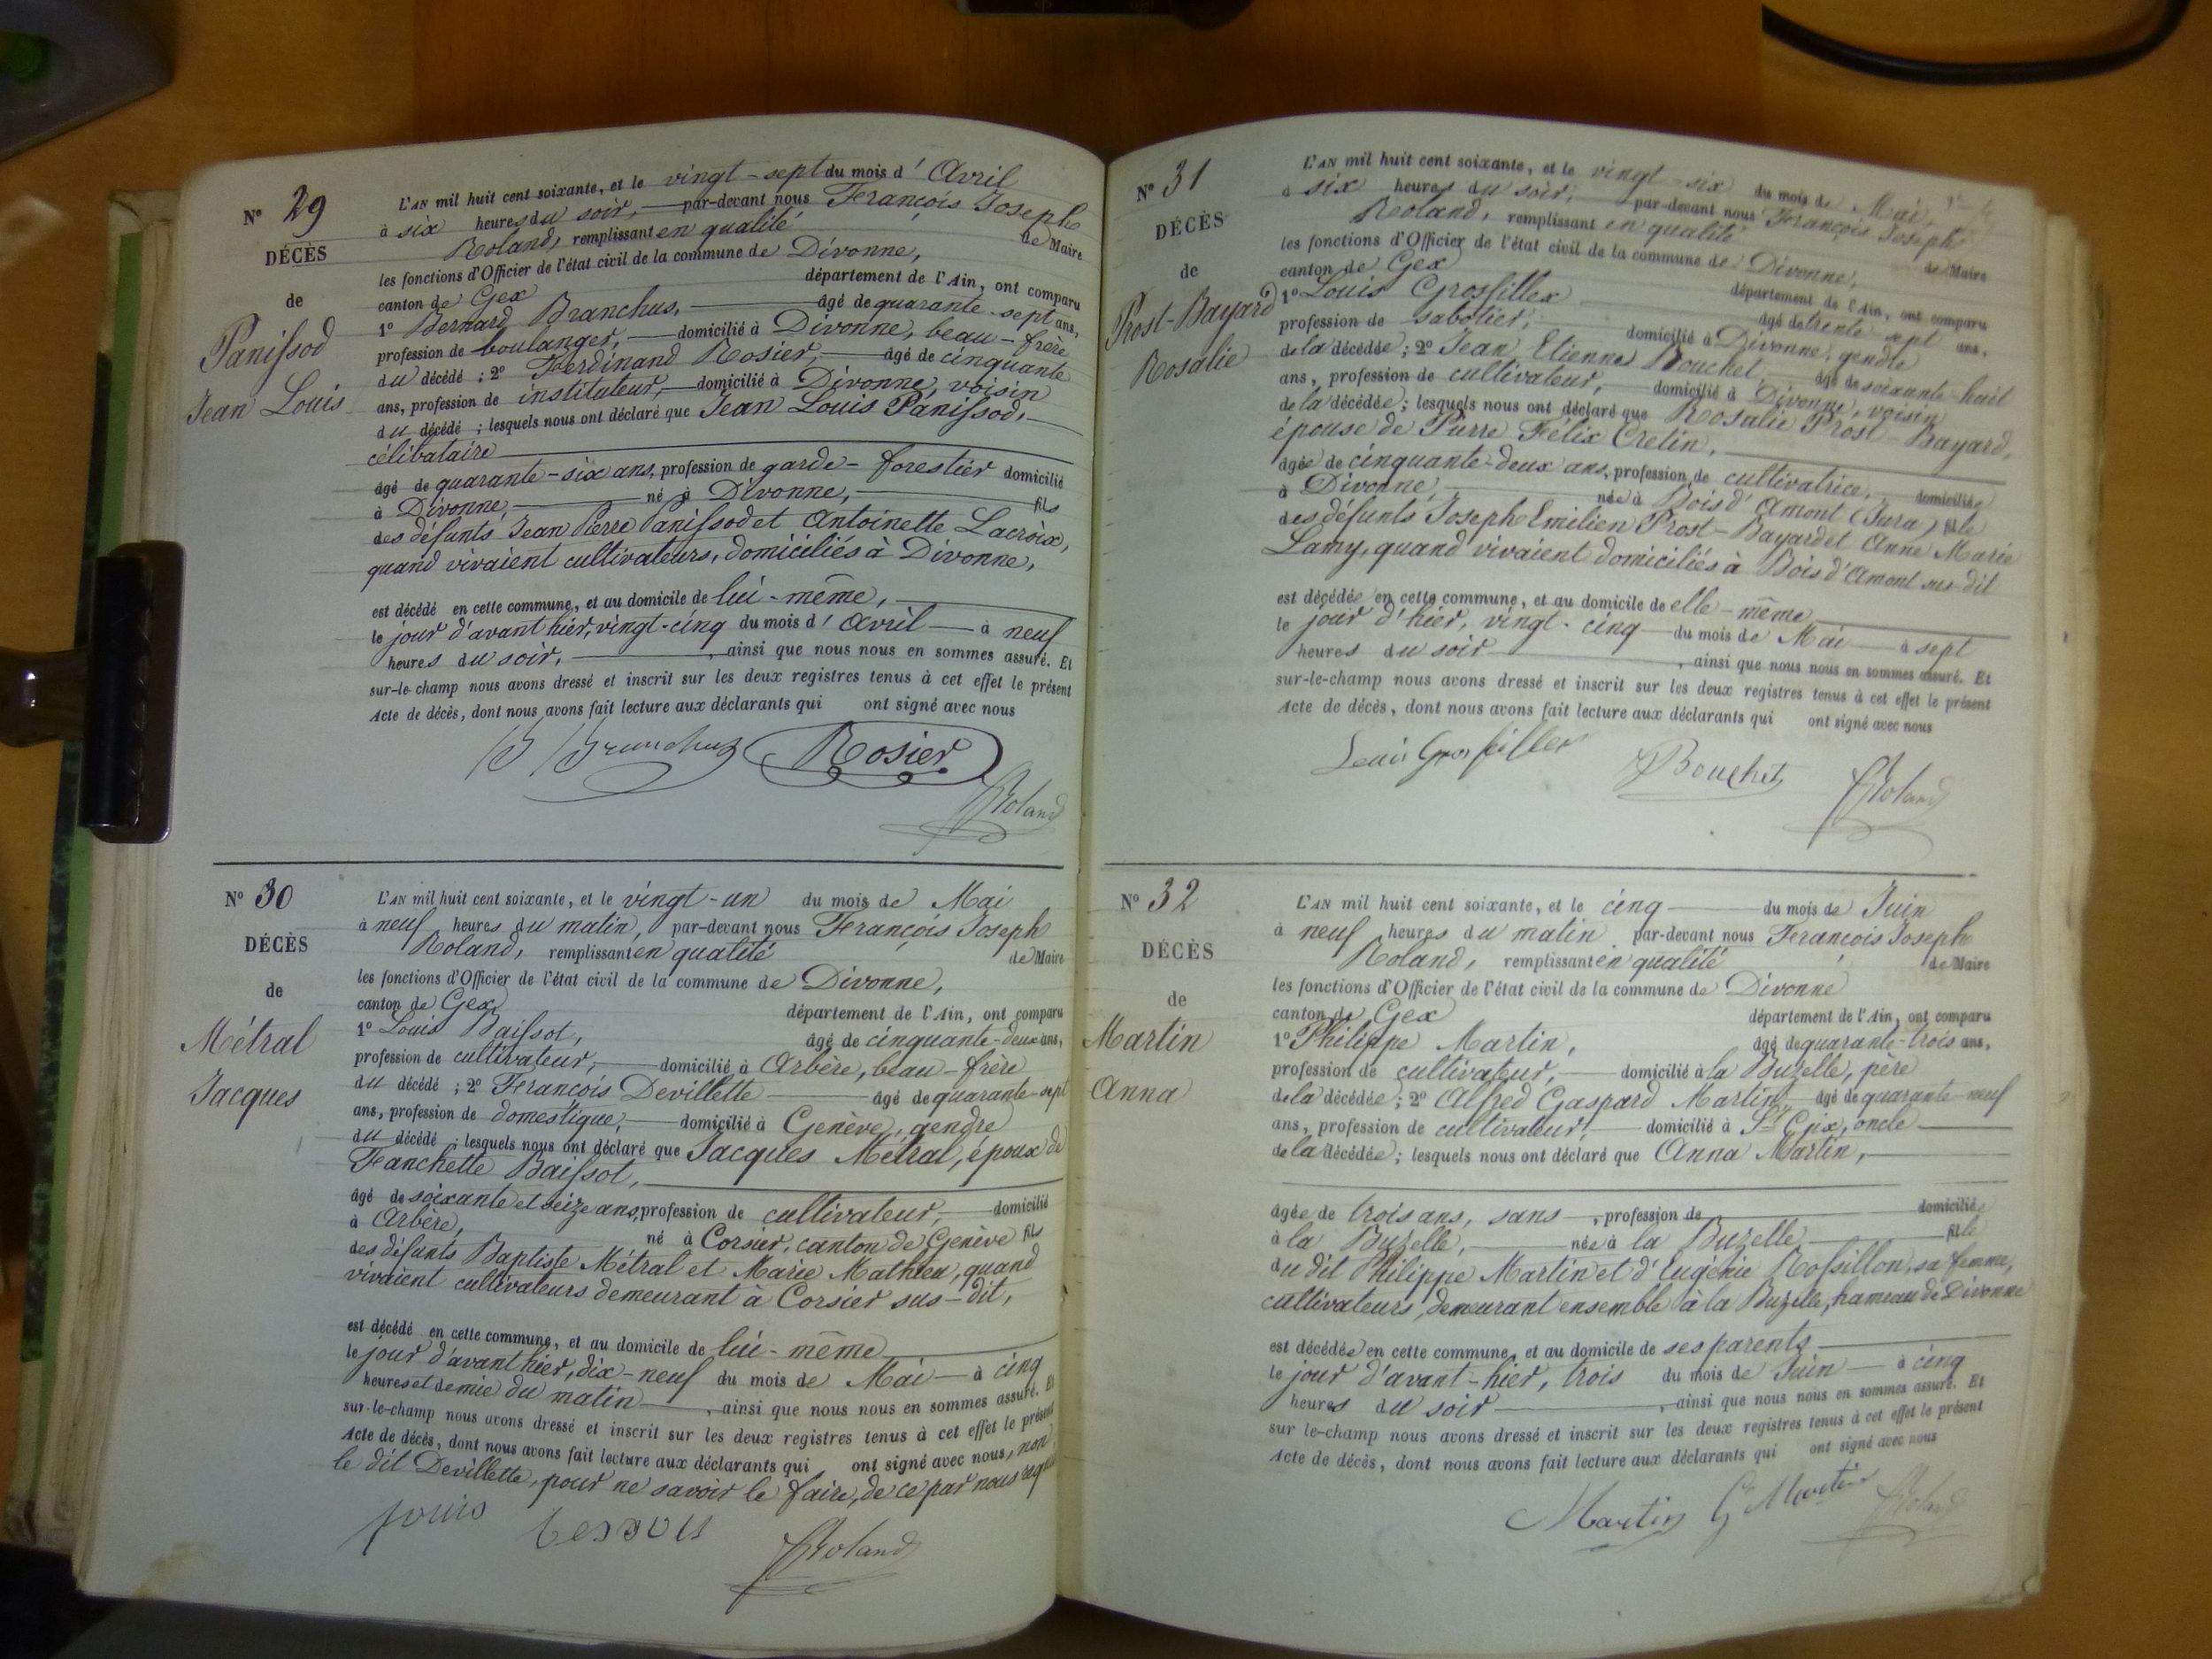 N° 29
DÉCÈS
de
Panissod
Jean Louis
L'AN mil huit cent soixante, et le vingt-sept du mois d'Avril
à six heures du soir, par-devant nous François Joseph
Roland, remplissant en qualité de Maire
les fonctions d'Officier de l'état civil de la commune de Divonne,
canton de Gex département de l'Ain, ont comparu
1° Bernard Branchus, âgé de quarante-sept ans,
profession de boulanger, domicilié à Divonne, beau-frère
du décédé ; 2° Ferdinand Rosier, âgé de cinquante
ans, profession de instituteur, domicilié à Divonne, voisin
du décédé ; lesquels nous ont déclaré que Jean Louis Panissod,
célibataire
âgé de quarante-six ans, profession de garde-forestier domicilié
à Divonne, né à Divonne, fils
des défunts Jean Pierre Panissod et Antoinette Lacroix,
quand vivaient cultivateurs, domiciliés à Divonne,
est décédé en cette commune, et au domicile de lui-même,
le jour d'avant hier, vingt-cinq du mois d'Avril à neuf
heures du soir, , ainsi que nous nous en sommes assuré. Et
sur-le-champ nous avons dressé et inscrit sur les deux registres tenus à cet effet le présent
Acte de décès, dont nous avons fait lecture aux déclarants qui ont signé avec nous
B Branchus Rosier
Roland
N° 30
DÉCÈS
de
Métral
Jacques
L'AN mil huit cent soixante, et le vingt-un du mois de Mai
à neuf heures du matin, par-devant nous François Joseph
Roland, remplissant en qualité de Maire
les fonctions d'Officier de l'état civil de la commune de Divonne,
canton de Gex département de l'Ain, ont comparu
1° Louis Baissot, âgé de cinquante-deux ans,
profession de cultivateur, domicilié à Arbère, beau-frère
du décédé ; 2° François Devillette âgé de quarante-sept
ans, profession de domestique, domicilié à Genève, gendre
du décédé ; lesquels nous ont déclaré que Jacques Métral, époux de
Franchette Baissot,
âgé de soixante et seize ans, profession de cultivateur, domicilié
à Arbère, né à Corsier, canton de Genève fils
des défunts Baptiste Métral et Marie Mathieu, quand
vivaient cultivateurs demeurant à Corsier sus-dit,
est décédé en cette commune, et au domicile de lui-même
le jour d'avant hier, dix-neuf du mois de Mai à cinq
heures et demie du matin , ainsi que nous nous en sommes assuré. Et
sur-le-champ nous avons dressé et inscrit sur les deux registres tenus à cet effet le présent
Acte de décès, dont nous avons fait lecture aux déclarants qui ont signé avec nous, non
le dit Devillette, pour ne savoir le faire, de ce par nous requis
Roland
N° 31
DÉCÈS
de
Prost-Bayard
Rosalie
L'AN mil huit cent soixante, et le vingt-six du mois de Mai,
à six heures du soir, par-devant nous François Joseph
Roland, remplissant en qualité de Maire
les fonctions d'Officier de l'état civil de la commune de Divonne,
canton de Gex département de l'Ain, ont comparu
1° Louis Grosfillex âgé de trente-sept ans,
profession de sabotier, domicilié à Divonne, gendre
de la décédée ; 2° Jean Etienne Bouchet âgé de soixante-huit
ans, profession de cultivateur, domicilié à Divonne, voisin
de la décédée ; lesquels nous ont déclaré que Rosalie Prost-Bayard,
épouse de Pierre Félix Cretin,
âgée de cinquante-deux ans, profession de cultivatrice, domiciliée
à Divonne, née à Bois d'Amont (Jura) fille
des défunts Joseph Emilien Prost-Bayard et Anne Marie
Lamy, quand vivaient domiciliés à Bois d'Amont sus dit
est décédée en cette commune, et au domicile de elle-même
le jour d'hier, vingt-cinq du mois de Mai à sept
heures du soir , ainsi que nous nous en sommes assuré. Et
sur-le-champ nous avons dressé et inscrit sur les deux registres tenus à cet effet le présent
Acte de décès, dont nous avons fait lecture aux déclarants qui ont signé avec nous
Louis Grosfillex Bouchet Roland
N° 32
DÉCÈS
de
Martin
Anna
L'AN mil huit cent soixante, et le cinq du mois de Juin
à neuf heures du matin par-devant nous François Joseph
Roland, remplissant en qualité de Maire
les fonctions d'Officier de l'état civil de la commune de Divonne
canton de Gex département de l'Ain, ont comparu
1° Philippe Martin, âgé de quarante-trois ans,
profession de cultivateur, domicilié à la Buzelle, père
de la décédée ; 2° Alfred Gaspard Martin, âgé de quarante-neuf
ans, profession de cultivateur, domicilié à St Gix, oncle
de la décédée ; lesquels nous ont déclaré que Anna Martin,
âgée de trois ans, sans , profession de domiciliée
à la Buzelle, née à la Buzelle fille
du dit Philippe Martin et d'Eugénie Rossillon, sa femme,
cultivateurs, demeurant ensemble à la Buzelle, hameau de Divonne
est décédée en cette commune, et au domicile de ses parents
le jour d'avant-hier, trois du mois de Juin à cinq
heures du soir , ainsi que nous nous en sommes assuré. Et
sur le-champ nous avons dressé et inscrit sur les deux registres tenus à cet effet le présent
Acte de décès, dont nous avons fait lecture aux déclarants qui ont signé avec nous
Martin G Martin Roland